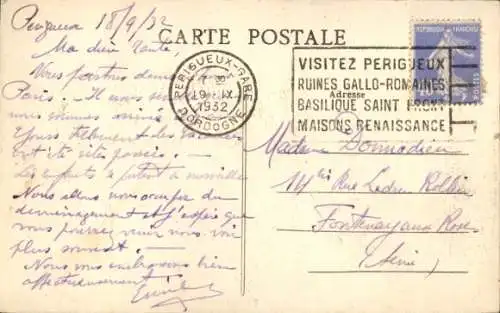 Périgueux 18/9/32
Ma chère Tante
Nous partons
Paris. Il nous
nous sommes
et été vite passés.
Les enfants se portent à merveille
Nous allons nous occuper du
déménagement et j'espère que
vous pourrez venir nous voir
plus souvent.
Nous vous embrassons bien
affectueusement
CARTE POSTALE
PERIGUEUX-GARE
19 IX
1932
DORDOGNE
REPUBLIQUE FRANÇAISE
VISITEZ PERIGUEUX
RUINES GALLO-ROMAINES
Adresse
BASILIQUE SAINT FRONT
MAISONS RENAISSANCE
Madame Donnadieu
14 bis Rue Ledru Rollin
Fontenay aux Roses
(Seine)